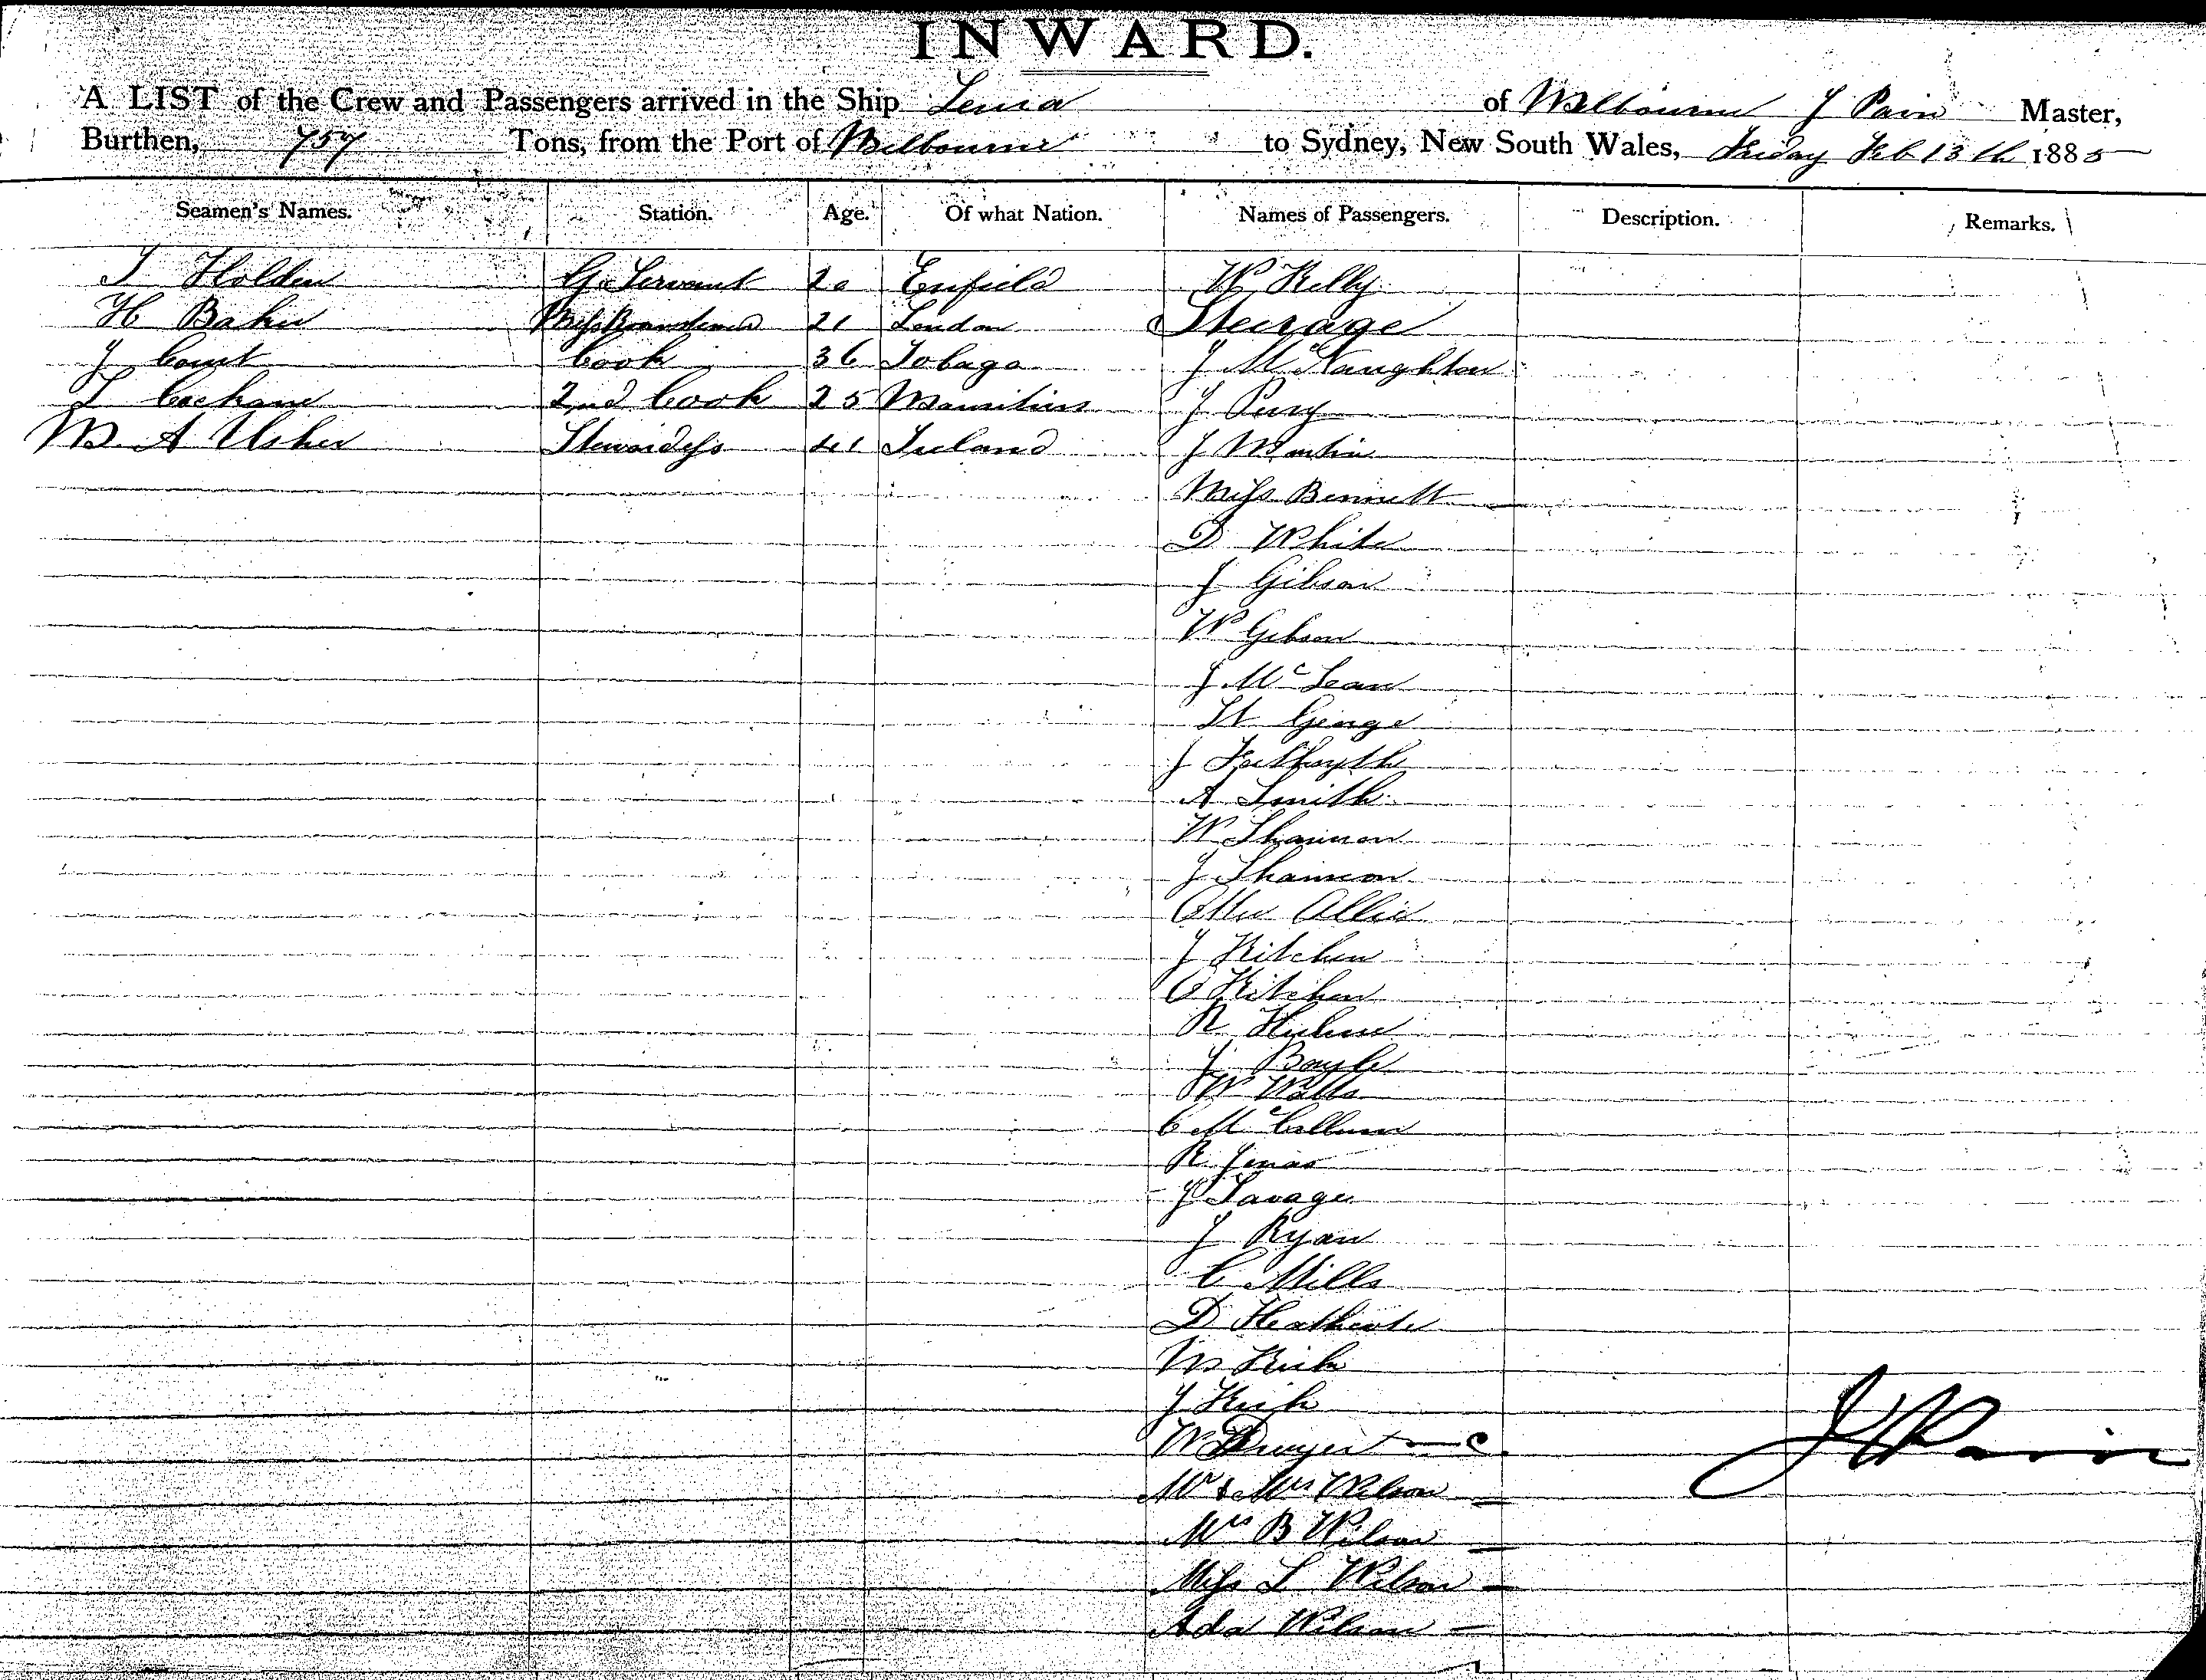 INWARD.
A LIST of the Crew and Passengers arrived in the Ship of Melbourne J Pain Master,
Burthen, 757 Tons, from the Port of Melbourne to Sydney, New South Wales, Friday Feb 13th 1885
Seamen's Names. Station. Age. Of what Nation. Names of Passengers. Description. Remarks.
T Holden G. Servant 20 Enfield W Kelly
H Baker 21 London Steerage
J Court Cook 36 Tobago J McNaughton
2nd Cook 25 Mauritius J
M A Usher Stewardess 41 Ireland J Martin
Miss Bennett
D White
J Gibson
W Gibson
J McLean
St George
J
A Smith
W Shannon
J Shannon
Allie
J Kitchen
C Kitchen
R Hulme
J Boyle
W Walls
C McCallum
R Jonas
J Savage
J Ryan
C Mills
D Heathcote
M
J
W Dwyer
Mr & Mrs Wilson
Mrs B Wilson
Miss L Wilson
Ada Wilson
J Pain